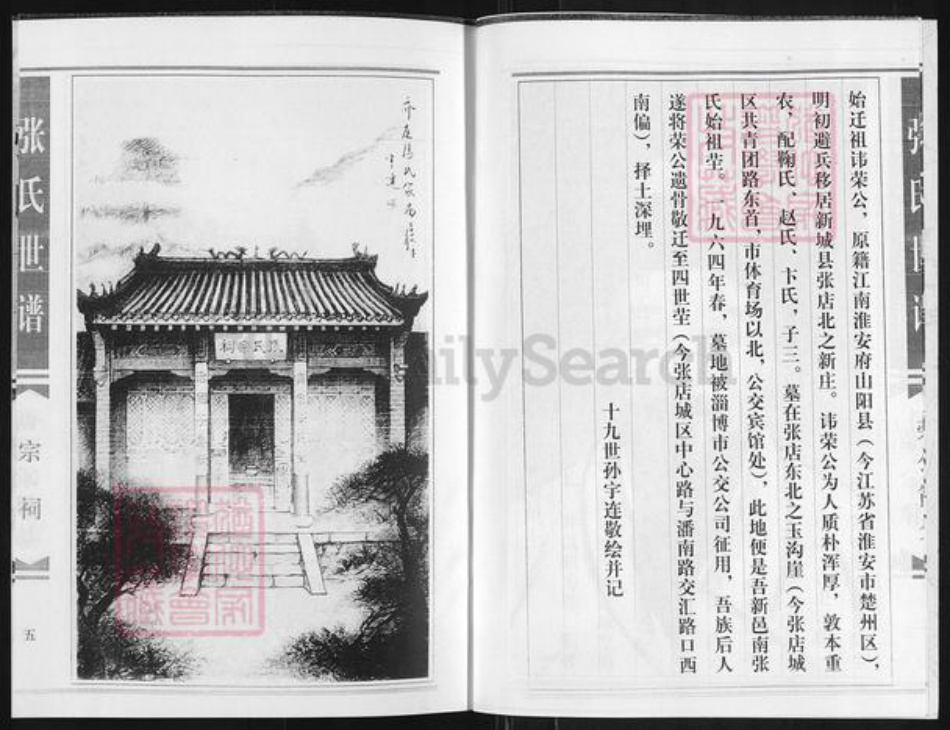 始迁祖讳荣公，原籍江南淮安府山阳县（今江苏省淮安市楚州区），
明初避兵移居新城县张店北之新庄。讳荣公为人质朴浑厚，敦本重
农，配鞠氏、赵氏、卞氏，子三。墓在张店东北之玉沟崖（今张店城
区共青团路东首，市体育场以北，公交宾馆处），此地便是吾新邑南张
氏始祖茔。一九六四年春，墓地被淄博市公交公司征用，吾族后人
遂将荣公遗骨敬迁至四世茔（今张店城区中心路与潘南路交汇路口西
南偏），择土深埋。
十九世孙宇连敬绘并记
张氏世谱
宗祠
五
张氏宗祠
FamilySearch